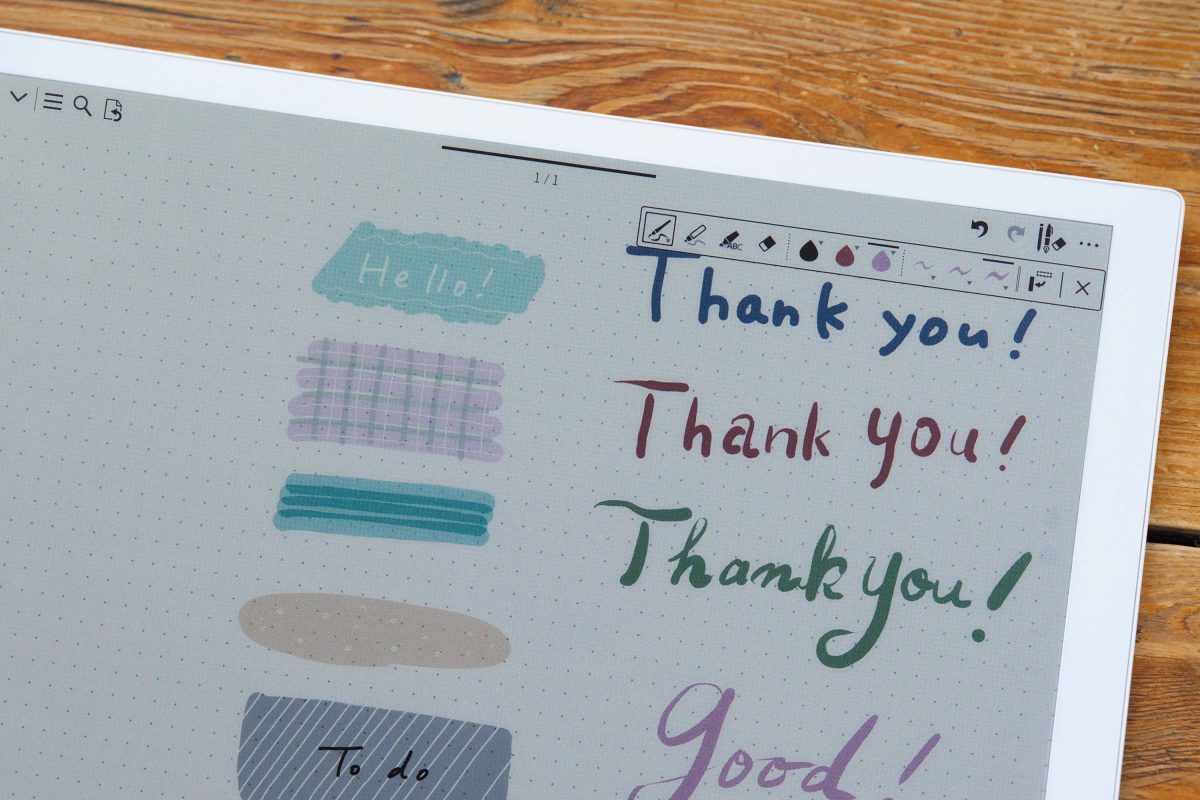 1/1
ABC
Hello!
Thank you!
Thank you!
Thank you!
To do
Good!